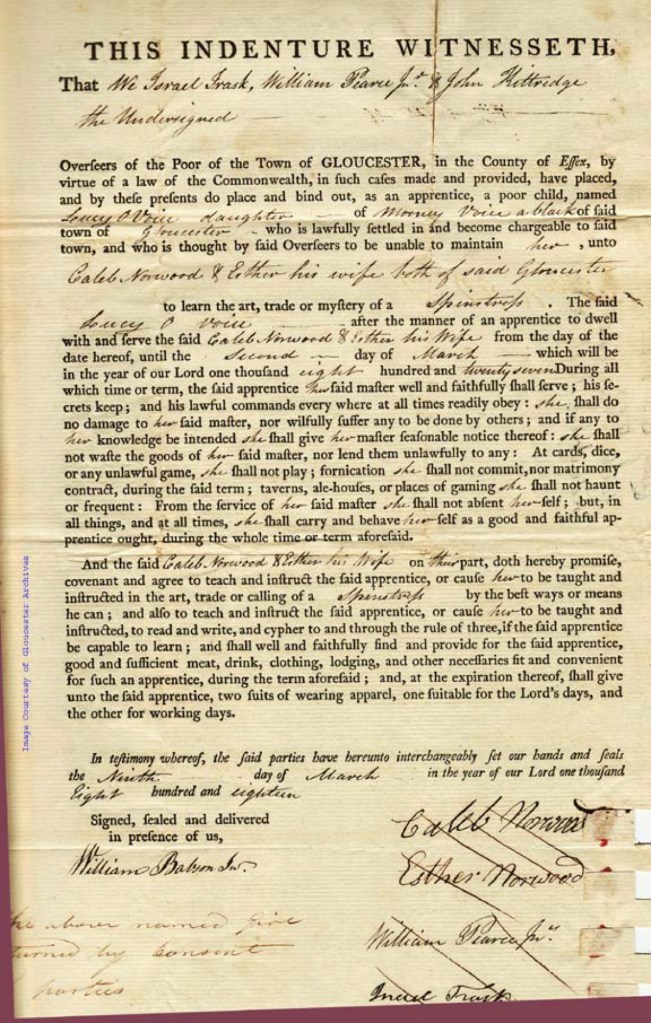 THIS INDENTURE WITNESSETH,
That We Israel Trask, William Pearce Jr. & John Kittredge
the Undersigned
Overſeers of the Poor of the Town of GLOUCESTER, in the County of Eſſex, by
virtue of a law of the Commonwealth, in ſuch caſes made and provided, have placed,
and by theſe preſents do place and bind out, as an apprentice, a poor child, named
Lucy O Voice daughter of Morney Voice a black of ſaid
town of Gloucester who is lawfully ſettled in and become chargeable to ſaid
town, and who is thought by ſaid Overſeers to be unable to maintain her, unto
Caleb Norwood & Esther his wife both of said Gloucester
to learn the art, trade or myſtery of a Spinstress. The ſaid
Lucy O Voice after the manner of an apprentice to dwell
with and ſerve the ſaid Caleb Norwood & Esther his Wife from the day of the
date hereof, until the Second day of March which will be
in the year of our Lord one thouſand eight hundred and twenty seven During all
which time or term, the ſaid apprentice her ſaid maſter well and faithfully ſhall ſerve; his ſe-
crets keep; and his lawful commands every where at all times readily obey: she ſhall do
no damage to her ſaid maſter, nor wilfully ſuffer any to be done by others; and if any to
her knowledge be intended she ſhall give her maſter ſeaſonable notice thereof: she ſhall
not waſte the goods of her ſaid maſter, nor lend them unlawfully to any: At cards, dice,
or any unlawful game, she ſhall not play; fornication she ſhall not commit, nor matrimony
contract, during the ſaid term; taverns, ale-houſes, or places of gaming she ſhall not haunt
or frequent: From the ſervice of her ſaid maſter she ſhall not abſent her ſelf; but, in
all things, and at all times, she ſhall carry and behave her ſelf as a good and faithful ap-
prentice ought, during the whole time or term aforeſaid.
And the ſaid Caleb Norwood & Esther his Wife on their part, doth hereby promiſe,
covenant and agree to teach and inſtruct the ſaid apprentice, or cauſe her to be taught and
inſtructed in the art, trade or calling of a Spinstress by the beſt ways or means
he can; and alſo to teach and inſtruct the ſaid apprentice, or cauſe her to be taught and
inſtructed, to read and write, and cypher to and through the rule of three, if the ſaid apprentice
be capable to learn; and ſhall well and faithfully find and provide for the ſaid apprentice,
good and ſufficient meat, drink, clothing, lodging, and other neceſſaries fit and convenient
for ſuch an apprentice, during the term aforeſaid; and, at the expiration thereof, ſhall give
unto the ſaid apprentice, two ſuits of wearing apparel, one ſuitable for the Lord's days, and
the other for working days.
In teſtimony whereof, the ſaid parties have hereunto interchangeably ſet our hands and ſeals
the Ninth day of March in the year of our Lord one thouſand
Eight hundred and eighteen
Signed, ſealed and delivered
in preſence of us,
William Babson Jur.
Caleb Norwood
Esther Norwood
William Pearce Jur.
Israel Trask
above named Girl
by Consent
parties
Image Courtesy of Gloucester Archives